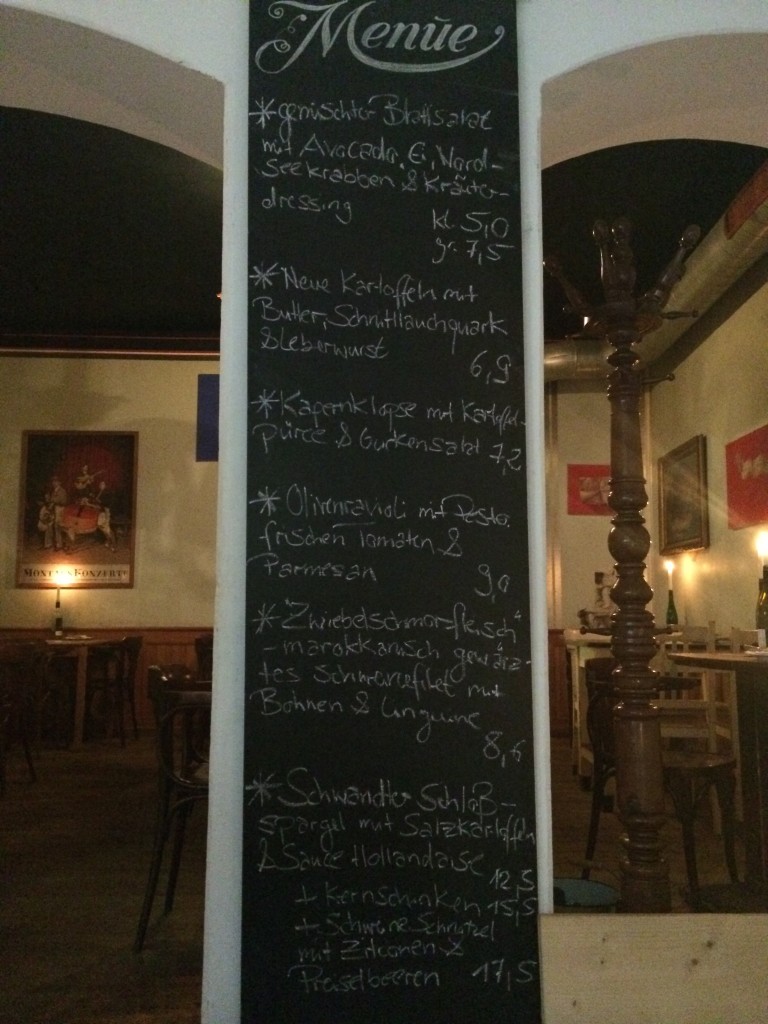 Menüe
* gemischter Blattsalat
mit Avocado, Ei, Nord-
seekrabben & Kräuter-
dressing
kl. 5,0
gr. 7,5
* Neue Kartoffeln mit
Butter, Schnittlauchquark
& Leberwurst
6,9
* Kapernklopse mit Kartoffel-
püree & Gurkensalat 7,2
* Olivenravioli mit Pesto,
frischen Tomaten &
Parmesan
9,0
* "Zwiebelschmorfleisch"
- marokkanisch gewürz-
tes Schweinefilet mit
Bohnen & Linguine
8,6
* Schwandter Schloß-
spargel mit Salzkartoffeln
& Sauce Hollandaise
12,5
+ Kernschinken 15,5
+ Schweine Schnitzel
mit Zitronen &
Preiselbeeren 17,5
KONZERT